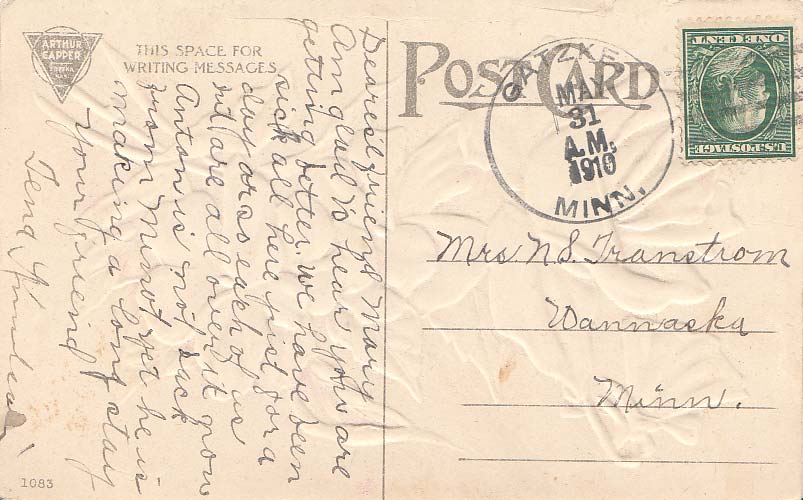 ARTHUR
CAPPER
TOPEKA
THIS SPACE FOR
WRITING MESSAGES
POST CARD
GATZKE
MAY
31
A.M.
1910
MINN.
ONE CENT
U.S. POSTAGE
Dearest friend Mary
Am glad to hear you are
getting better. We have been
sick all here just for a
day or so each of us
but are all over it now
Anton is not back
from Minot yet he is
making a long stay
your friend
Mrs N S. Transtrom
Wannaska
Minn.
1083